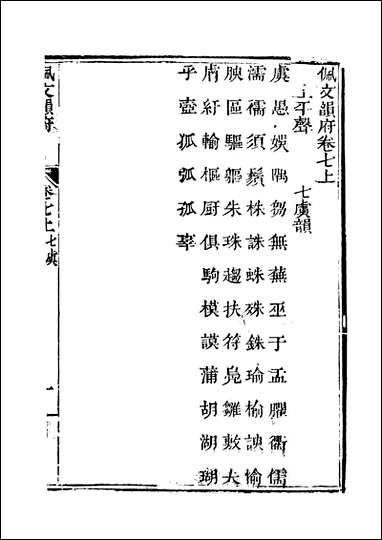 佩文韻府卷七上
上平聲　七虞韻
虞愚娛隅芻無蕪巫于盂臞衢儒
濡襦須鬚株誅蛛殊銖瑜榆諛愉
腴區驅軀朱珠趨扶符鳧雛敷夫
膚紆輸樞厨俱駒模謨蒲胡湖瑚
乎壺狐弧孤辜
佩文韻府　卷七上七虞　一